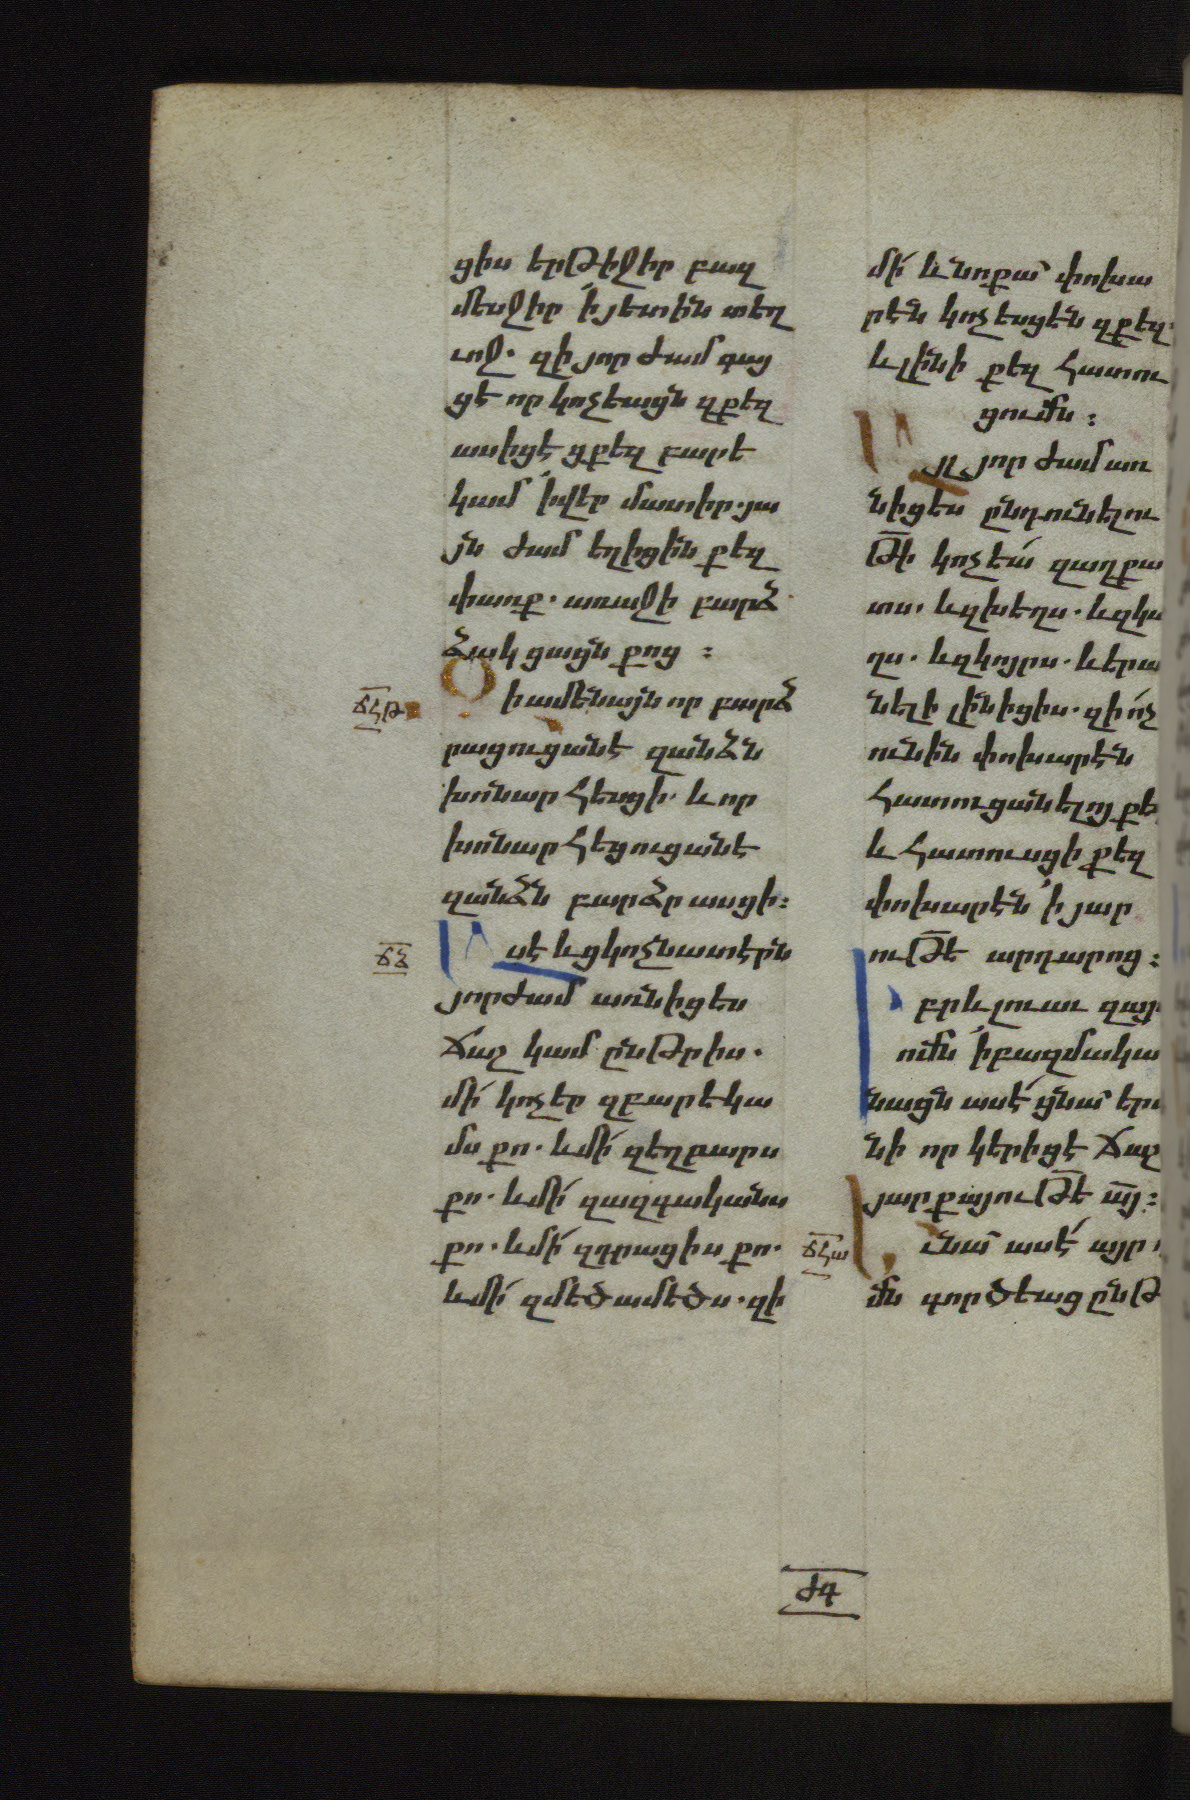 ցիս երթիջիր բազ
մեսջիր ՚ի յետին տեղ
ւոջ. զի յորժամ գայ
ցէ որ կոչեացն զքեզ
ասիցէ ցքեզ բարե
կամ ՚ի վեր մատիր. յա
յն ժամ եղիցին քեզ
փառք. առաջի բարձ
ձակցացն քոց ։
ճհթ
Զի ամենայն որ բարձ
րացուցանէ զանձն
խոնարհեսցի. և որ
խոնարհեցուցանէ
զանձն բարձրասցի։
ճձ
Ասէ և ցկոչնատէրն
յորժամ առնիցես
ճաշ կամ ընթրիս.
մի կոչեր զբարեկա
մս քո. և մի զեղբարս
քո. և մի զազգականս
քո. և մի զդրացիս քո.
և մի զմեծամեծս. զի
մի և նոքա փոխա
րէն կոչեսցեն զքեզ.
և լինի քեզ հատու
ցումն ։
Այլ յորժամ առ
նիցես ընդունելու
թի կոչեա զաղքա
տս. և զխեղս. և զկա
ղս. և զկոյրս. և երա
նելի լինիցիս. զի ոչ
ունին փոխարէն
հատուցանելոյ քե
և հատուսցի քեզ
փոխարէն ՚ի յար
ութե արդարոց։
Իբրև լուաւ զայս
ոմն ՚ի բազմակա
նացն ասէ ցնա երա
նի որ կերիցէ ճաշ
յարքայութե այ։
ճձա
Եւ նա ասէ այր
մն գործեաց ընթ
ԺԳ